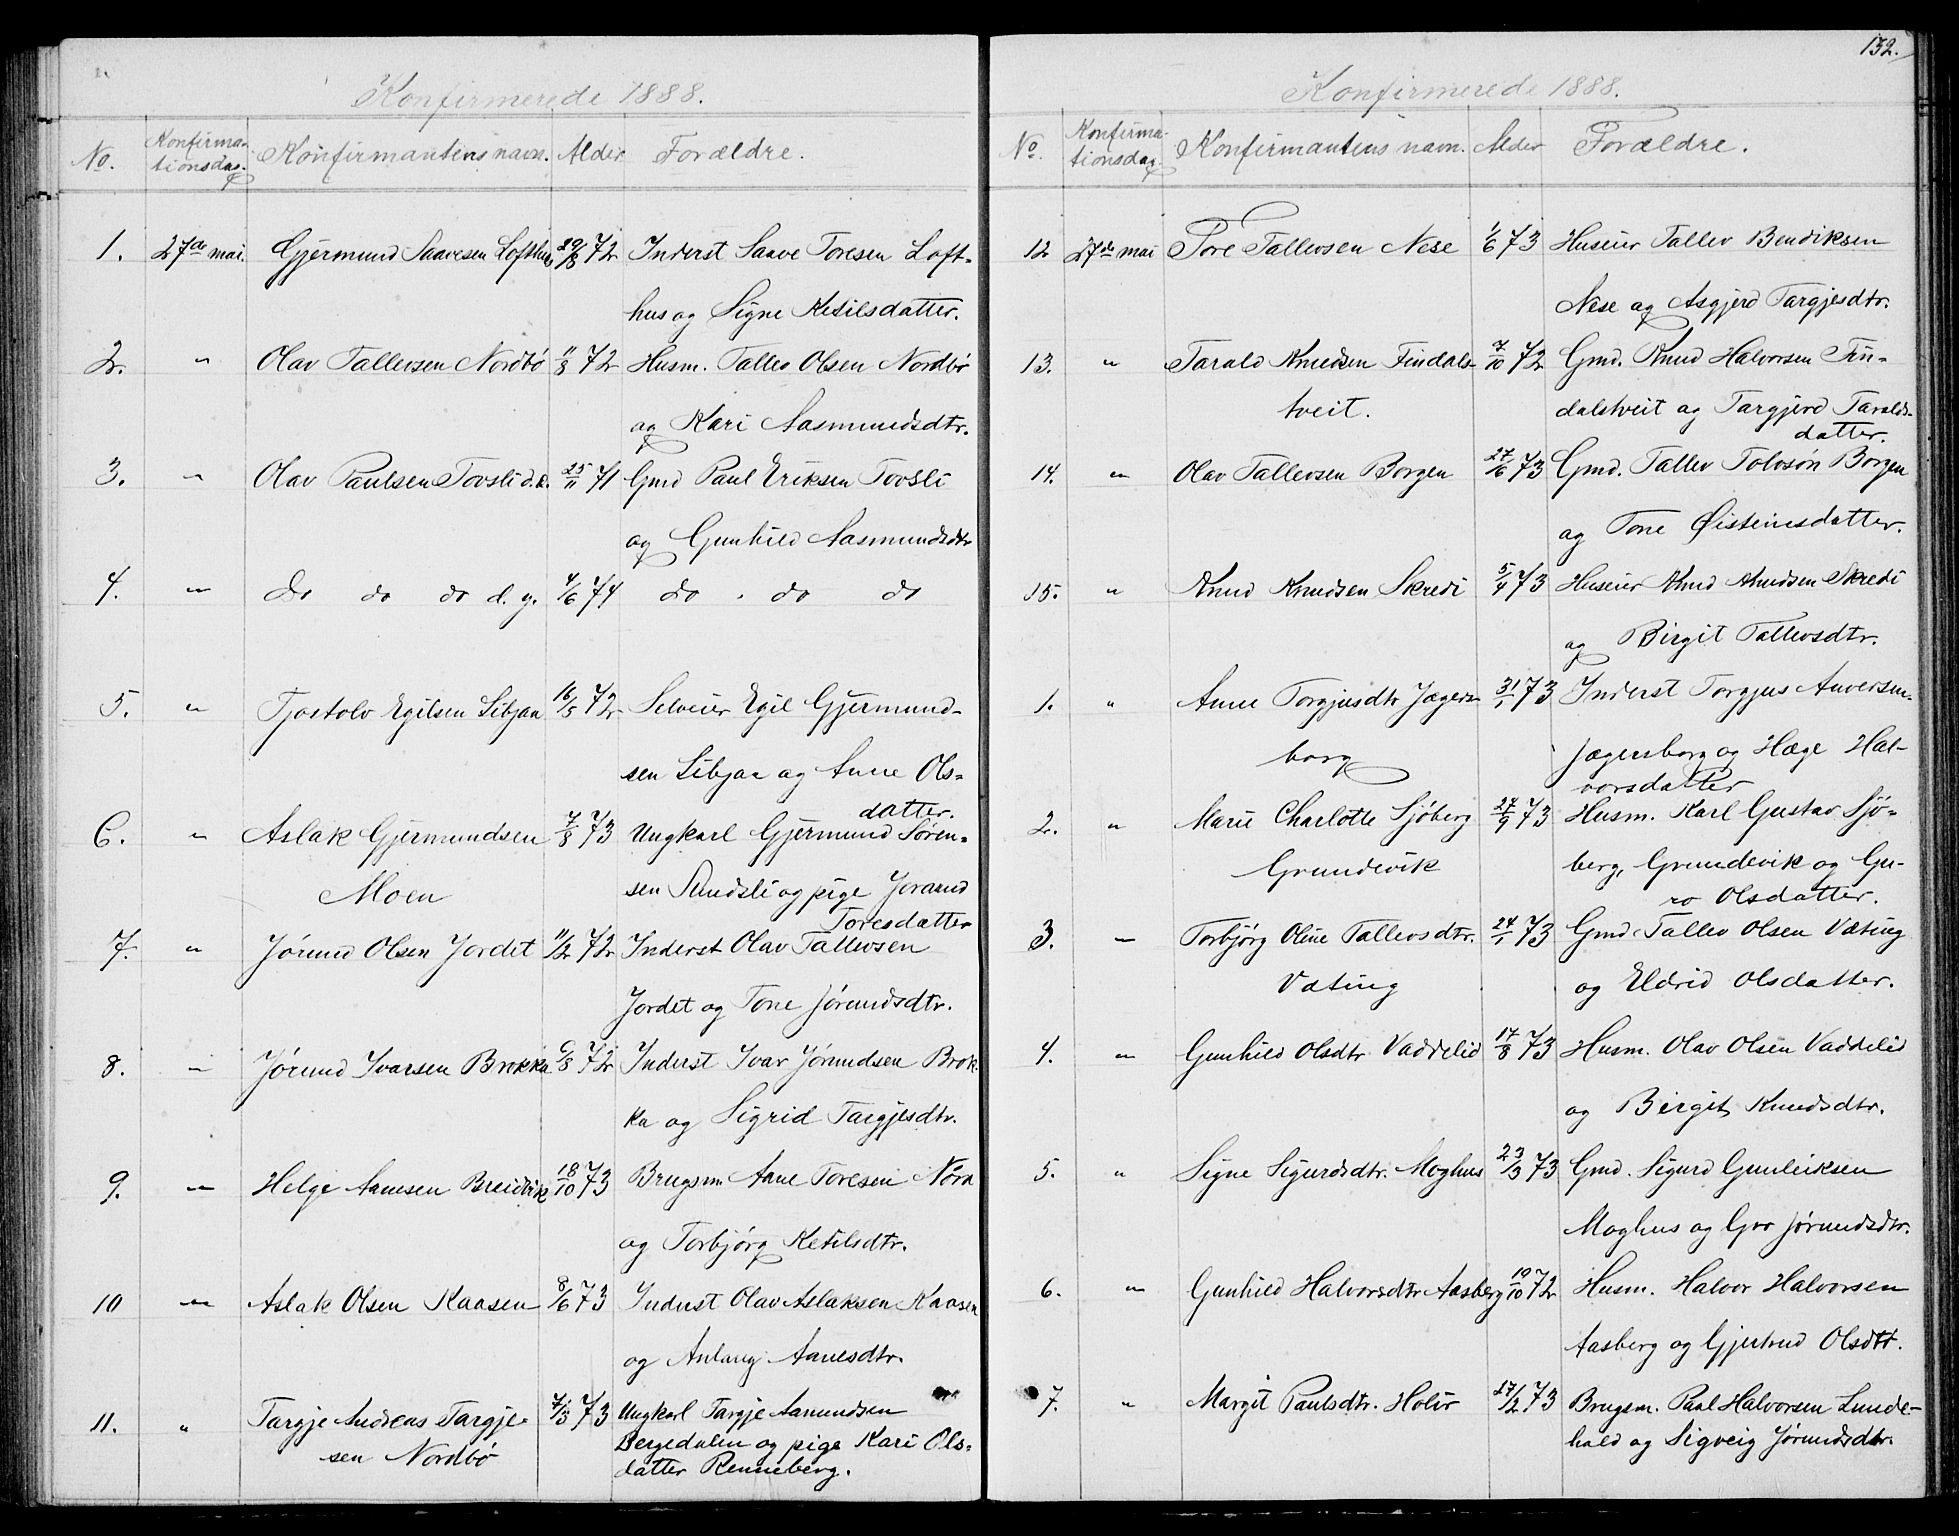 Konfirmerede 1888.
No. Konfirma- Konfirmantens navn. Alder Forældre.
tionsdag.
1. 27de mai. Gjermund Saavesen Lofthus 29/8 72 Inderst Saave Toresen Loft-
hus og Signe Ketilsdatter.
2. " Olav Tallevsen Nordbö 11/8 72 Husm. Tallev Olsen Nordbö
og Kari Aasmundsdtr.
3. " Olav Paulsen Tovsli d.e. 25/11 71 Gmd Paul Eriksen Tovsli
og Gunhild Aasmundsdtr
4. " do do do d. y. 4/6 74 do . do do
5. " Tjostolv Egilsen Libjaa 16/5 72 Selveier Egil Gjermund-
sen Libjaa og Anne Ols-
datter.
6. " Aslak Gjermundsen 7/8 73 Ungkarl Gjermund Sören-
Moen sen Sundsli og pige Joraand
Toresdatter
7. " Jörund Olsen Jordet 11/2 72 Inderst Olav Tallevsen
Jordet og Tone Jörundsdtr.
8. " Jörund Ivarsen Brokka 6/8 72 Inderst Ivar Jörundsen Brok-
ka og Sigrid Targjesdtr.
9. " Helge Aanesen Breidvik 18/10 73 Brugsm. Aane Toresen Nöra
og Torbjörg Ketilsdtr.
10 " Aslak Olsen Kaasen 8/6 73 Inderst Olav Aslaksen Kaasen
og Anlaug Aanesdtr.
11. " Targje Andreas Targje- 7/3 73 Ungkarl Targje Aamundsen
sen Nordbö Bergedalen og pige Kari Ols-
datter Renneberg.
132.
Konfirmerede 1888.
No. Konfirma- Konfirmantens navn. Alder Forældre.
tionsdag
12 27de mai Tore Tallevsen Nese 1/6 73 Huseier Tallev Bendiksen
Nese og Asgjerd Targjesdtr.
13. " Tarald Knudsen Findals- 7/10 72 Gmd. Knud Halvorsen Fin-
tveit. dalstveit og Targjerd Taralds-
datter.
14. " Olav Tallevsen Borgen 27/6 73 Gmd. Tallev Tolvsön Borgen
og Tone Øisteinsdatter.
15. " Knud Knudsen Skredi 5/4 73 Huseier Knud Knudsen Skredi
og Birgit Tallevsdtr.
1. " Anne Torgjusdtr Jægers- 31/1 73 Inderst Torgjus Anversen
borg Jægersborg og Hæge Hal-
vorsdatter
2. " Marie Charlotte Sjöberg 27/9 73 Husm. Karl Gustav Sjö-
Grundevik berg, Grundevik og Gu-
ro Olsdatter.
3. " Torbjörg Oline Tallevsdtr. 24/1 73 Gmd. Tallev Olsen Væting
Væting og Eldrid Olsdatter.
4. " Gunhild Olsdtr Vaddelid 17/8 73 Husm. Olav Olsen Vaddelid
og Birgit Knudsdtr.
5. " Signe Sigurdsdtr. Moghus 23/3 73 Gmd. Sigurd Gunleiksen
Moghus og Gro Jörundsdtr.
6. " Gunhild Halvorsdtr Aasberg 19/10 72 Husm. Halvor Halvorsen
Aasberg og Gjertrud Olsdtr.
7. " Margit Paulsdtr. Holir 27/2 73 Brugsm. Paal Halvorsen Lunde-
hald og Sigveig Jörundsdtr.